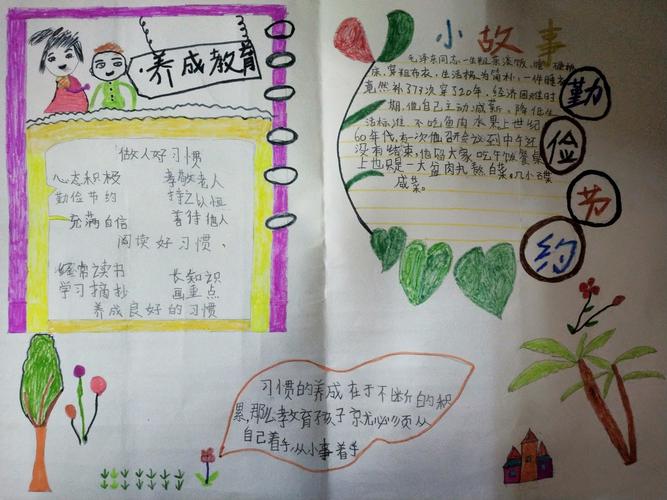 养成教育
做人好习惯
心态积极 孝敬老人
勤俭节约 持之以恒
充满自信 善待他人
阅读好习惯、
经常读书 长知识
学习摘抄 画重点
养成良好的习惯
小故事
毛泽东同志一生粗茶淡饭、睡硬板
床、穿粗布衣,生活极为简朴,一件睡衣
竟然补了73次穿了20年。经济困难时
期,他自己主动减薪、降低生
活标准、不吃鱼肉水果上世纪
60年代,有一次他召开会议到中午还
没有结束,他留大家吃午饭餐桌
上也只是一大盆肉丸熬白菜。几小碟
咸菜。
勤俭节约
习惯的养成在于不断的积
累,那么教育孩子就必须从
自己着手,从小事着手